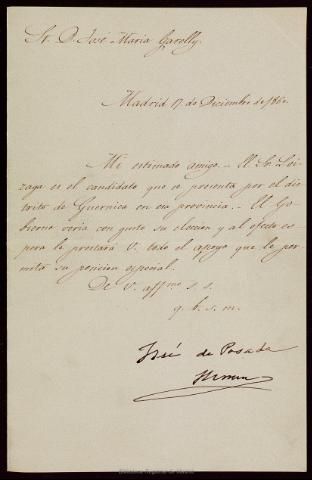 Sr. D. José Maria Garelly.
Madrid 17 de Diciembre de 1860.
Mi estimado amigo. – El Sr. Loi-
zaga es el candidato que se presenta por el dis-
trito de Guernica en esa provincia. – El Go-
bierno veria con gusto su eleccion y al efecto es-
pera le prestará V. todo el apoyo que le per-
mita su posicion especial.
De V. affmo s. s.
q. b. s. m.
José de Posada
Herrera